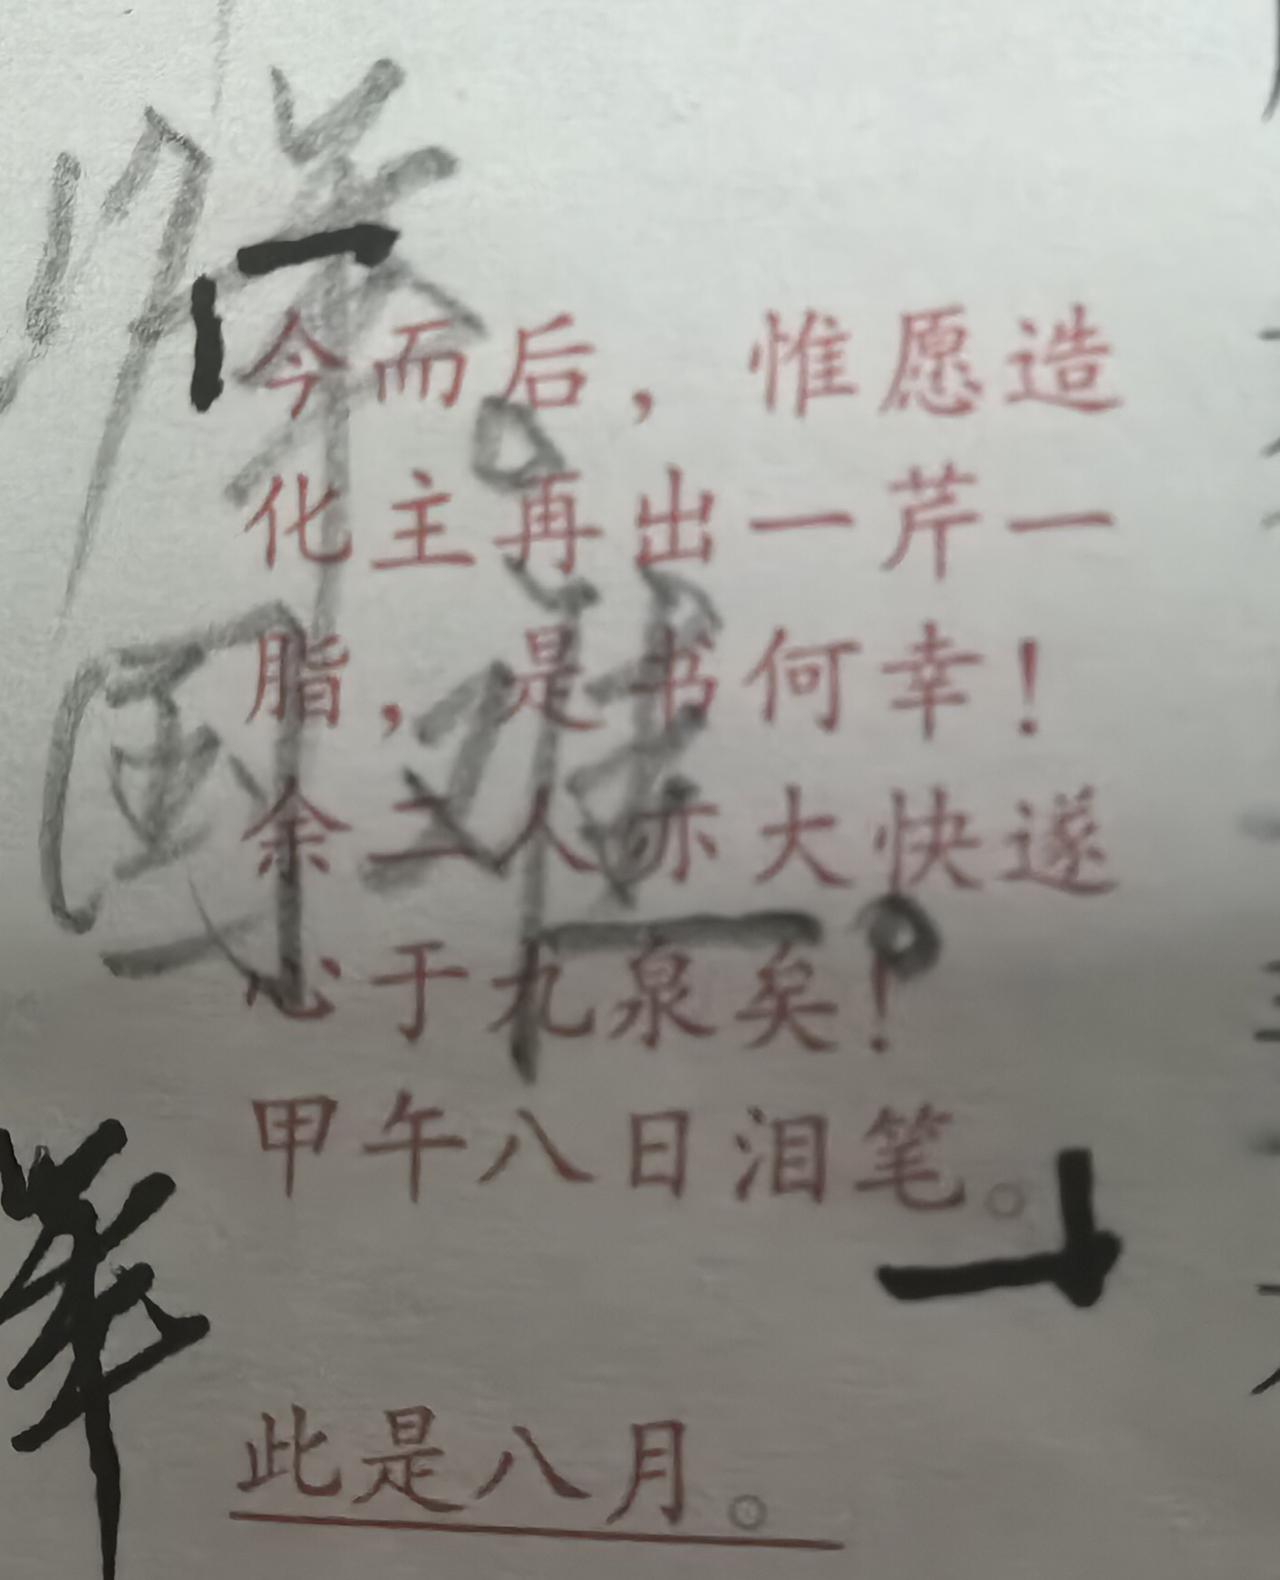 今而后，惟愿造
化主再出一芹一
脂，是书何幸！
余二人亦大快遂
心于九泉矣！
甲午八日泪笔。
此是八月。